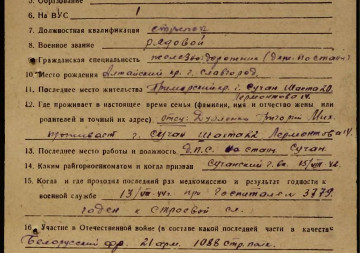 5. Образование
6. На ВУС 1
7. Должностная квалификация стрелок
8. Военное звание рядовой
9. Гражданская специальность
10. Место рождения Алтайский кр. г. Славгород.
11. Последнее место жительства Приморский кр. г. Сучан Шахта 20,
Лермонтова 14.
12. Где проживает в настоящее время семья (фамилия, имя и отчество жены или
родителей и точный их адрес) отец: Григорий Мих.
проживает г. Сучан Шахта 20 Лермонтова 14.
13. Последнее место работы и должность ст. Сучан.
14. Каким райгорвоенкоматом и когда призван Сучанский г. вк. 42
15. Когда и где проходил последний раз медкомиссию и результат годности к
военной службе 13/VIII 44г. при Госпитале 3779.
годен к строевой сл.
16. Участие в Отечественной войне (в составе какой последней части в качеств
Белорусский фр. 21 арм. 1088 стр. полк.